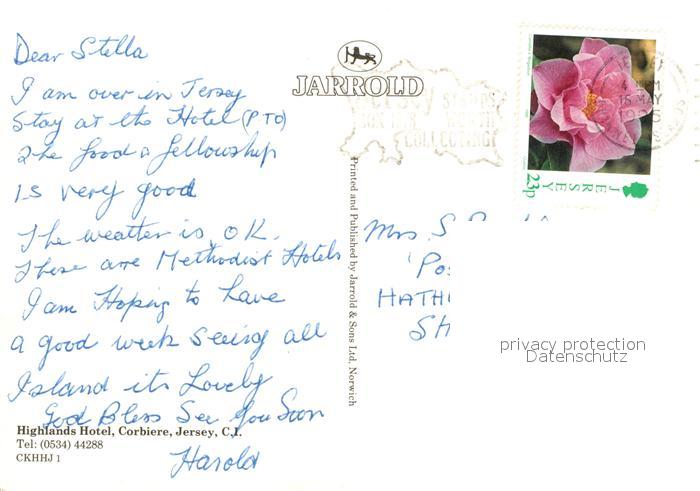 Dear Stella
I am over in Jersey
Stay at the Hotel (PTO)
The food & fellowship
is very good
The weather is OK.
These are Methodist Hotels
I am Hoping to have
a good week seeing all
Island its Lovely
God Bless See You Soon
Harold
Highlands Hotel, Corbiere, Jersey, C.I.
Tel: (0534) 44288
CKHHJ 1
JARROLD
Printed and Published by Jarrold & Sons Ltd, Norwich
JERSEY STAMPS
WORTH
COLLECTING!
15 MAY
JERSEY
23p
Mrs S
'Po
HATH
SH
privacy protection
Datenschutz